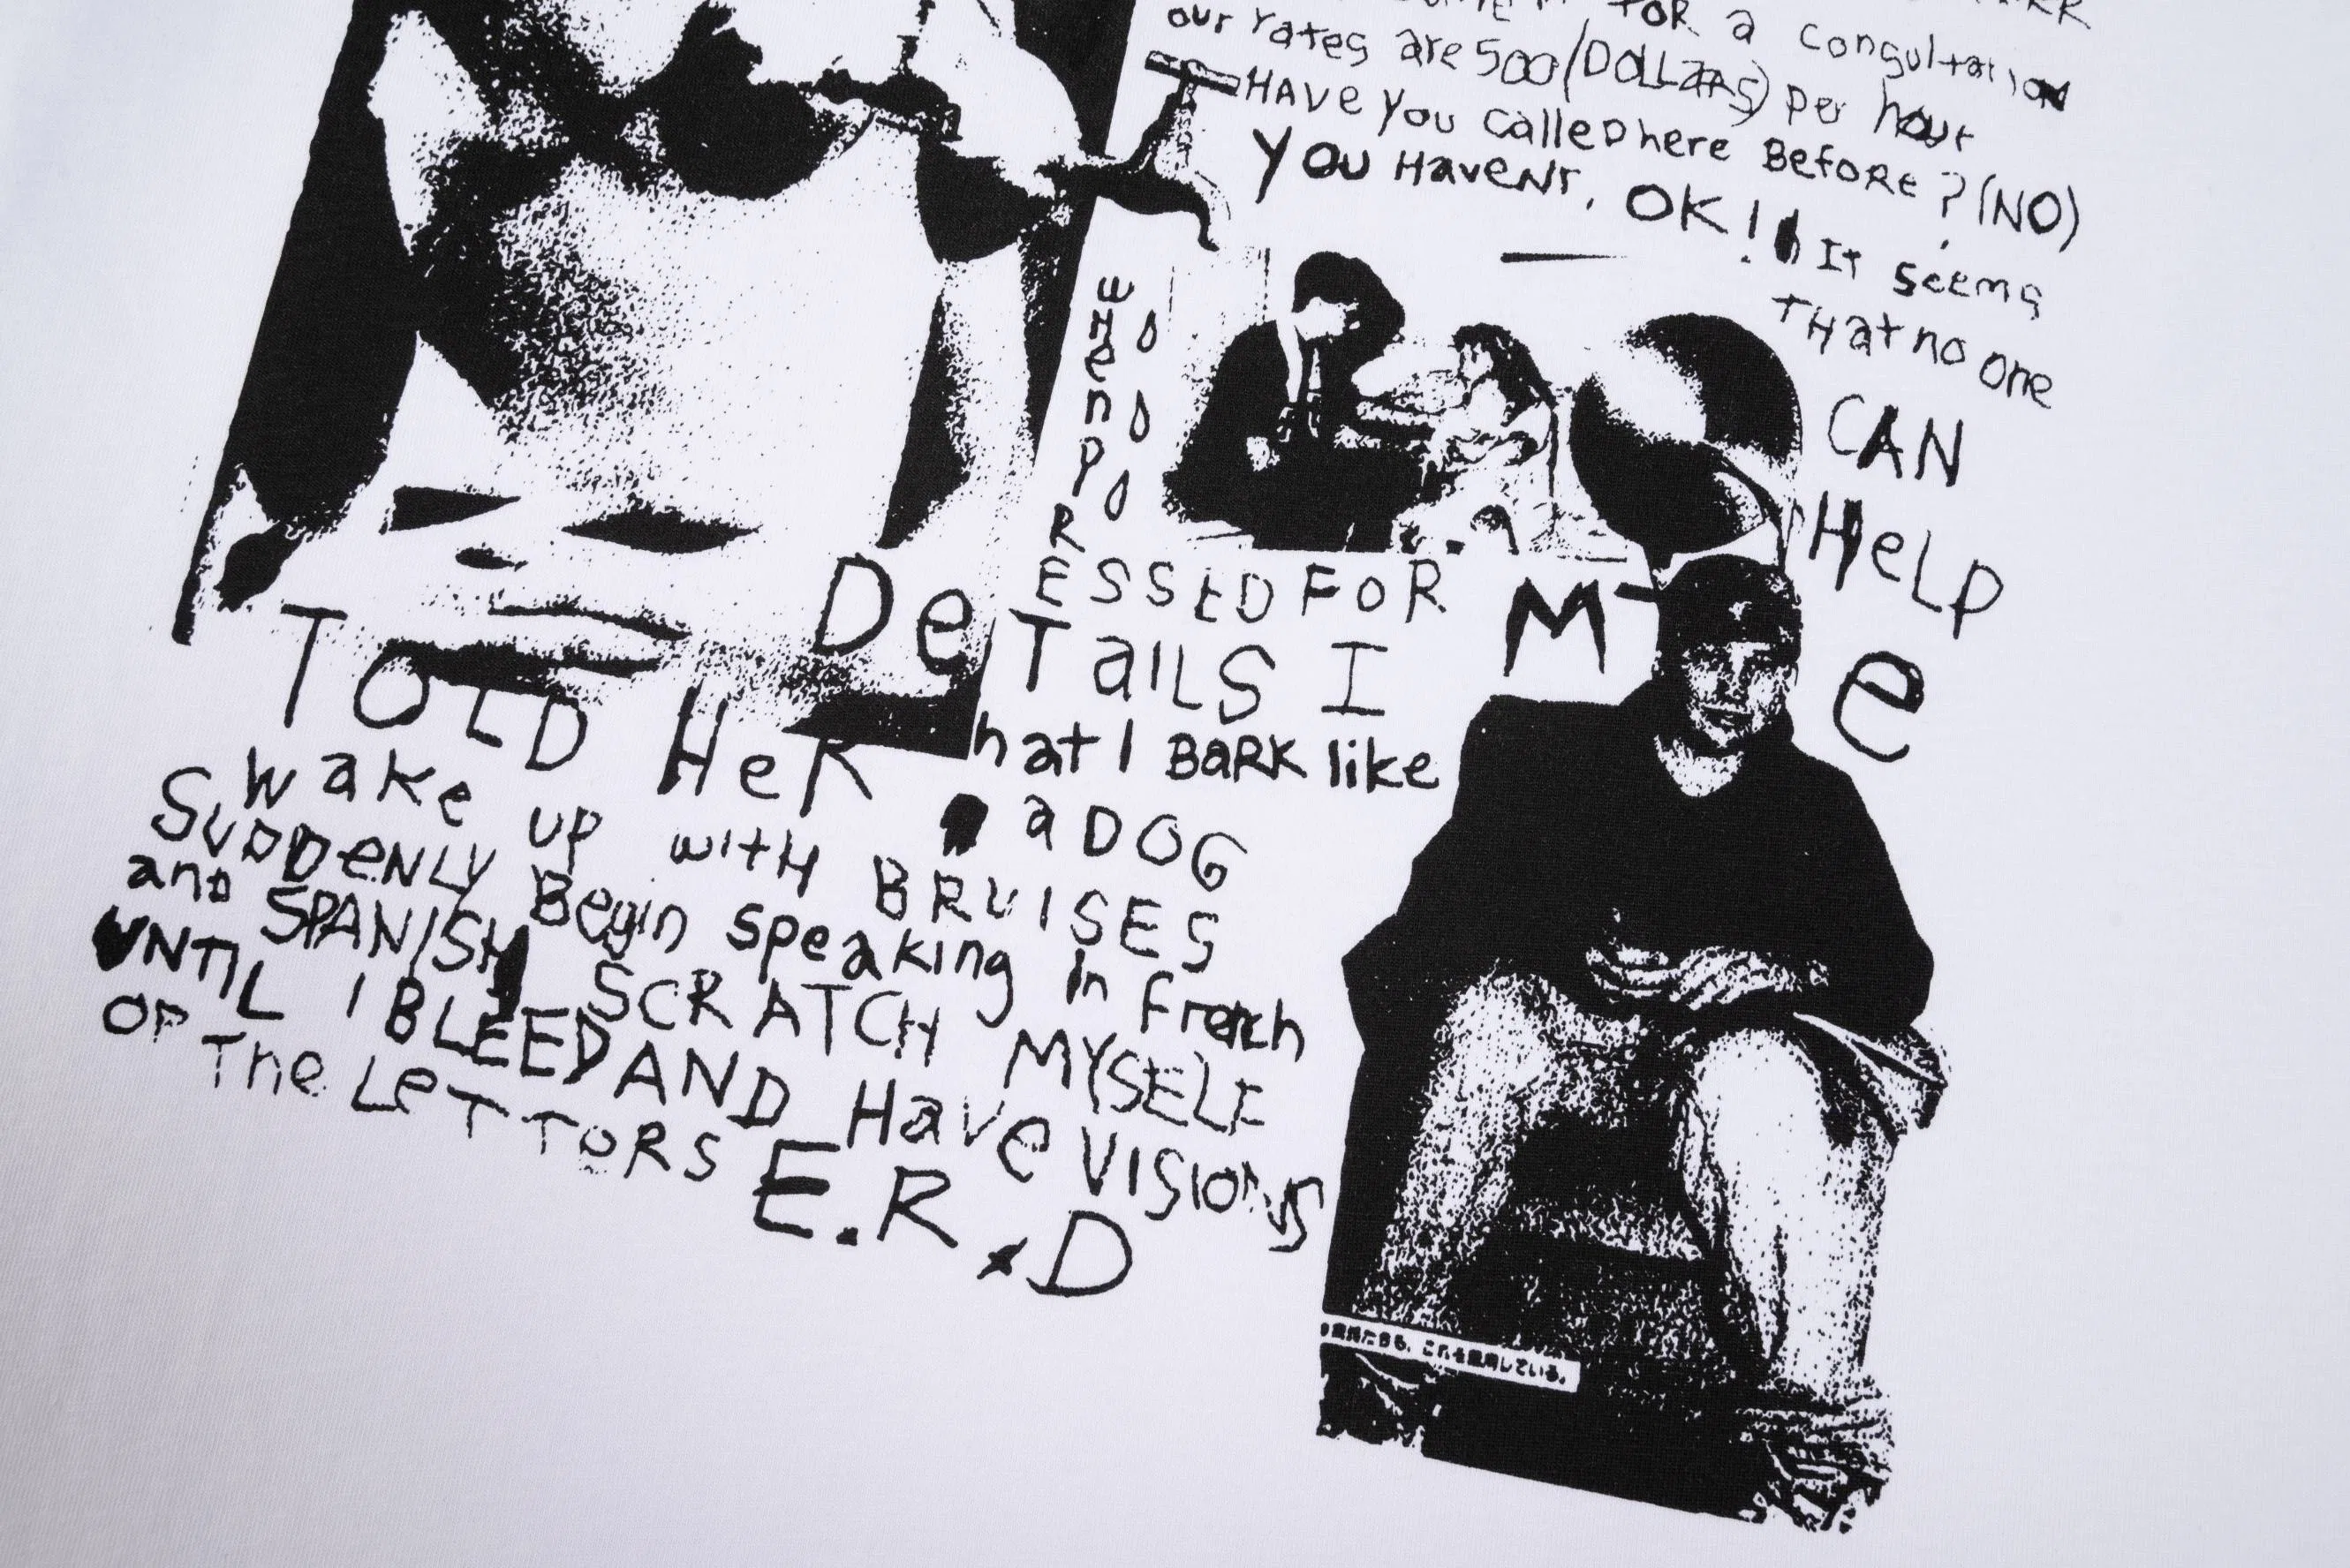 FOR a consultation
our rates are 500 (DOLLARS) per hour
HAVe you calleD here BeFoRe? (NO)
YOU HaveNt, OK! It seems
THat no one
CAN
HeLP
Me
wHenPRESSED FOR
DeTaILS I
TOLD HeR hat I BaRK like
a DOG
wake up with BRUISES
SuDDeNLy Begin speaking in french
anD SPANISH SCRATCH MYSELF
UNTIL I BLEED AND Have VISIONS
OF The LeTTORS E.R.D
これを愛用している。